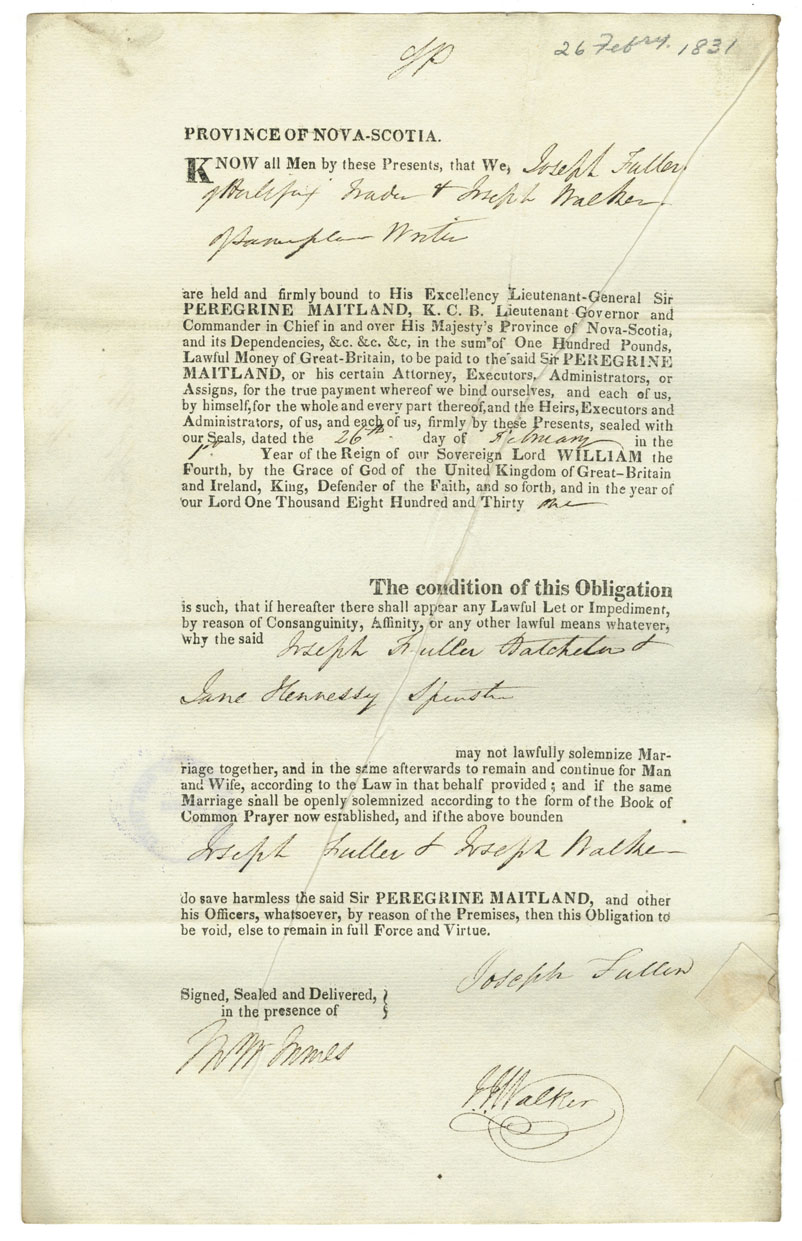 26 Febry. 1831
PROVINCE OF NOVA-SCOTIA.
KNOW all Men by these Presents, that We, Joseph Fuller
of Halifax Trader & Joseph Walker
of same place Writer
are held and firmly bound to His Excellency Lieutenant-General Sir
PEREGRINE MAITLAND, K. C. B. Lieutenant Governor and
Commander in Chief in and over His Majesty's Province of Nova-Scotia,
and its Dependencies, &c. &c. &c, in the sum of One Hundred Pounds,
Lawful Money of Great-Britain, to be paid to the said Sir PEREGRINE
MAITLAND, or his certain Attorney, Executors, Administrators, or
Assigns, for the true payment whereof we bind ourselves, and each of us,
by himself, for the whole and every part thereof, and the Heirs, Executors and
Administrators, of us, and each of us, firmly by these Presents, sealed with
our Seals, dated the 26th day of February in the
1st Year of the Reign of our Sovereign Lord WILLIAM the
Fourth, by the Grace of God of the United Kingdom of Great-Britain
and Ireland, King, Defender of the Faith, and so forth, and in the year of
our Lord One Thousand Eight Hundred and Thirty one
The condition of this Obligation
is such, that if hereafter there shall appear any Lawful Let or Impediment,
by reason of Consanguinity, Affinity, or any other lawful means whatever,
why the said Joseph Fuller Batchelor &
Jane Hennessy Spinster
may not lawfully solemnize Mar-
riage together, and in the same afterwards to remain and continue for Man
and Wife, according to the Law in that behalf provided; and if the same
Marriage shall be openly solemnized according to the form of the Book of
Common Prayer now established, and if the above bounden
Joseph Fuller & Joseph Walker
do save harmless the said Sir PEREGRINE MAITLAND, and other
his Officers, whatsoever, by reason of the Premises, then this Obligation to
be void, else to remain in full Force and Virtue.
Joseph Fuller
Signed, Sealed and Delivered,
in the presence of
Innes
Walker